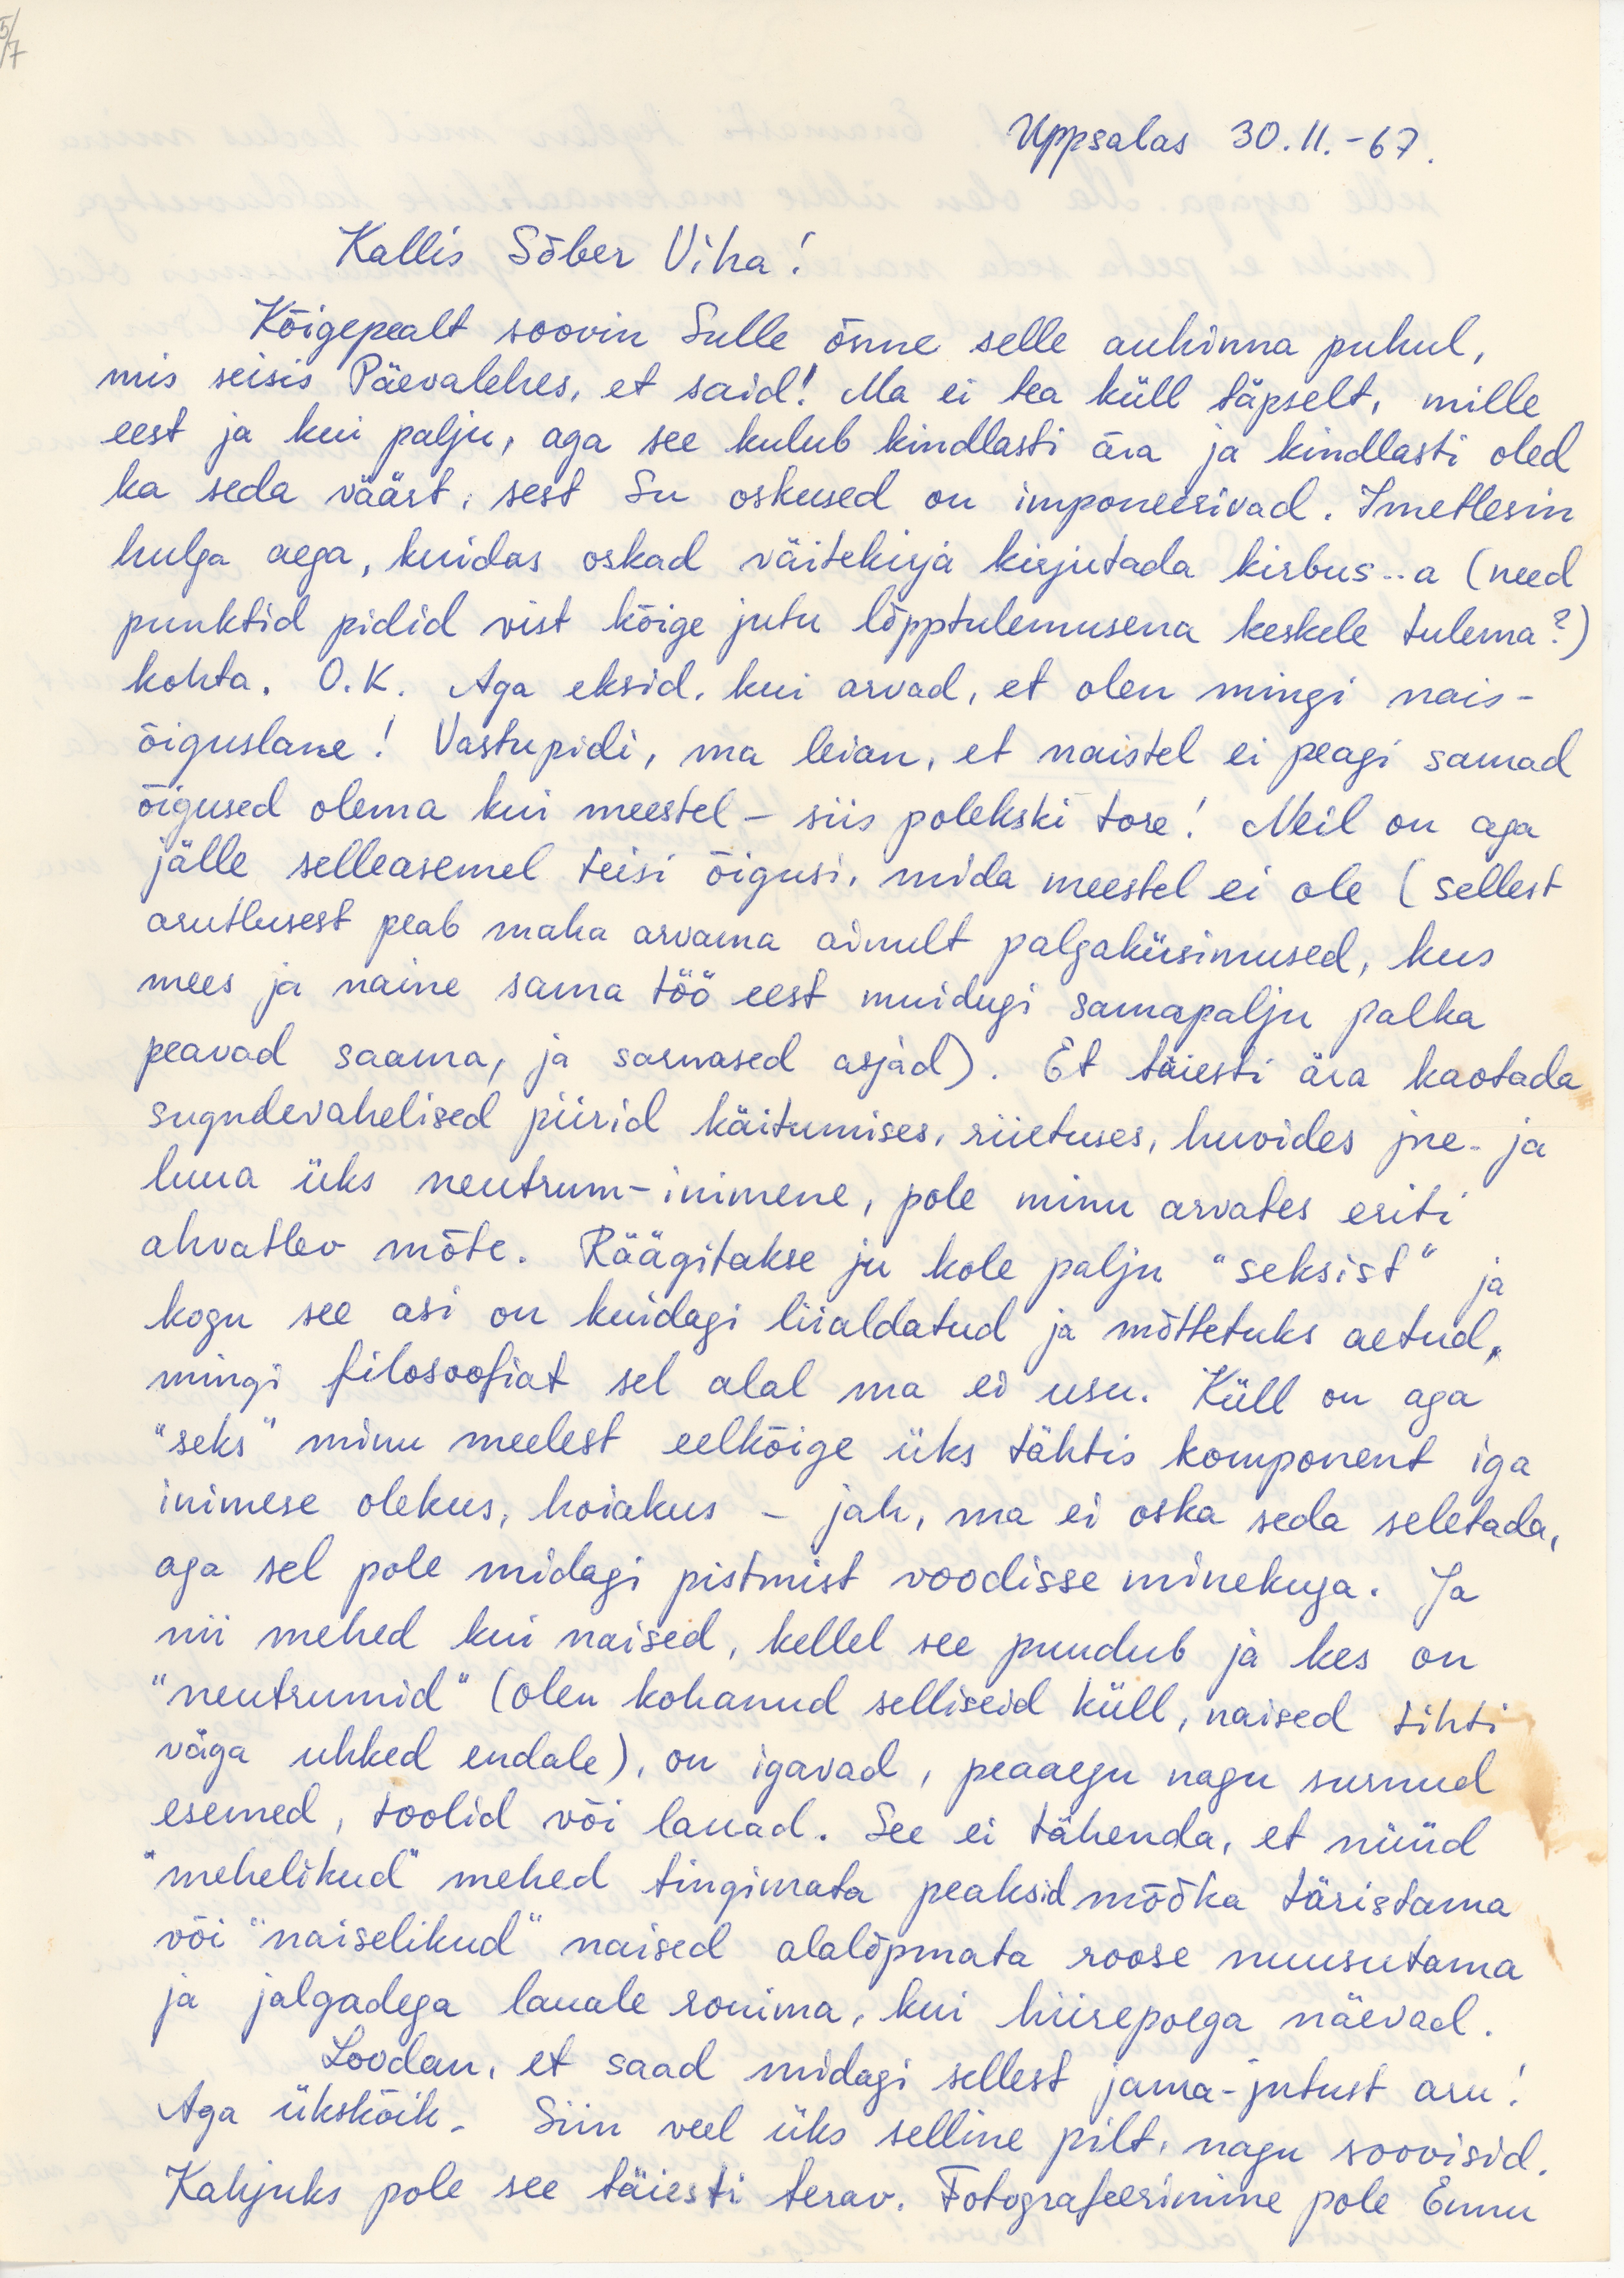 5/7
Uppsalas 30.11.-67.
Kallis Sõber Viha!
Kõigepealt soovin Sulle õnne selle auhinna puhul,
mis seisis Päevalehes, et said! Ma ei tea küll täpselt, mille
eest ja kui palju, aga see kulub kindlasti ära ja kindlasti oled
ka seda väärt, sest Su oskused on imponeerivad. Imetlesin
hulga aega, kuidas oskad väitekirja kirjutada kirbus..a (need
punktid pidid vist kõige jutu lõpptulemusena keskele tulema?)
kohta. O.K. Aga eksid, kui arvad, et olen mingi nais-
õiguslane! Vastupidi, ma leian, et naistel ei peagi samad
õigused olema kui meestel – siis polekski tore! Neil on aga
jälle selleasemel teisi õigusi, mida meestel ei ole (sellest
arutlusest peab maha arvama ainult palgaküsimused, kus
mees ja naine sama töö eest muidugi samapalju palka
peavad saama, ja sarnased asjad). Et täiesti ära kaotada
sugudevahelised piirid käitumises, riietuses, huvides jne. ja
luua üks neutrum-inimene, pole minu arvates eriti
ahvatlev mõte. Räägitakse ju kole palju "seksist" ja
kogu see asi on kuidagi liialdatud ja mõttetuks aetud,
mingi filosoofiat sel alal ma ei usu. Küll on aga
"seks" minu meelest eelkõige üks tähtis komponent iga
inimese olekus, hoiakus – jah, ma ei oska seda seletada,
aga sel pole midagi pistmist voodisse minekuga. Ja
nii mehed kui naised, kellel see puudub ja kes on
"neutrumid" (olen kohanud selliseid küll, naised tihti
väga uhked endale), on igavad, peaaegu nagu surnud
esemed, toolid või lauad. See ei tähenda, et nüüd
"mehelikud" mehed tingimata peaksid mõõka täristama
või "naiselikud" naised alalõpmata roose nuusutama
ja jalgadega lauale ronima, kui hiirepoega näevad.
Loodan, et saad midagi sellest jama-jutust aru!
Aga ükskõik. Siin veel üks selline pilt, nagu soovisid.
Kahjuks pole see täiesti terav. Fotografeerimine pole Ennu